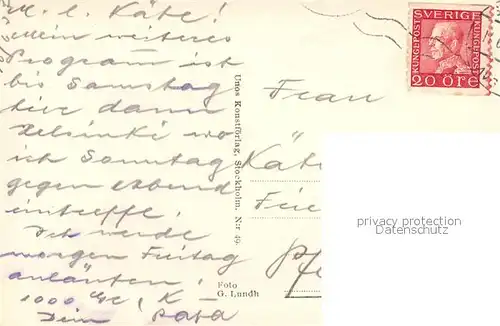 M. l. Käte!
Mein weiteres
Program ist
bis Samstag
hier dann
Helsinki wo
ich Sonntag
gegen abend
eintreffe.
Ich werde
morgen Freitag
anläuten!
1000 K –
Dein Papa
Unos Konstförlag, Stockholm. N:r 49.
Foto
G. Lundh
SVERIGE
KUNGL.POST
KUNGL.POST
20 ÖRE
Frau
Käte
privacy protection
Datenschutz